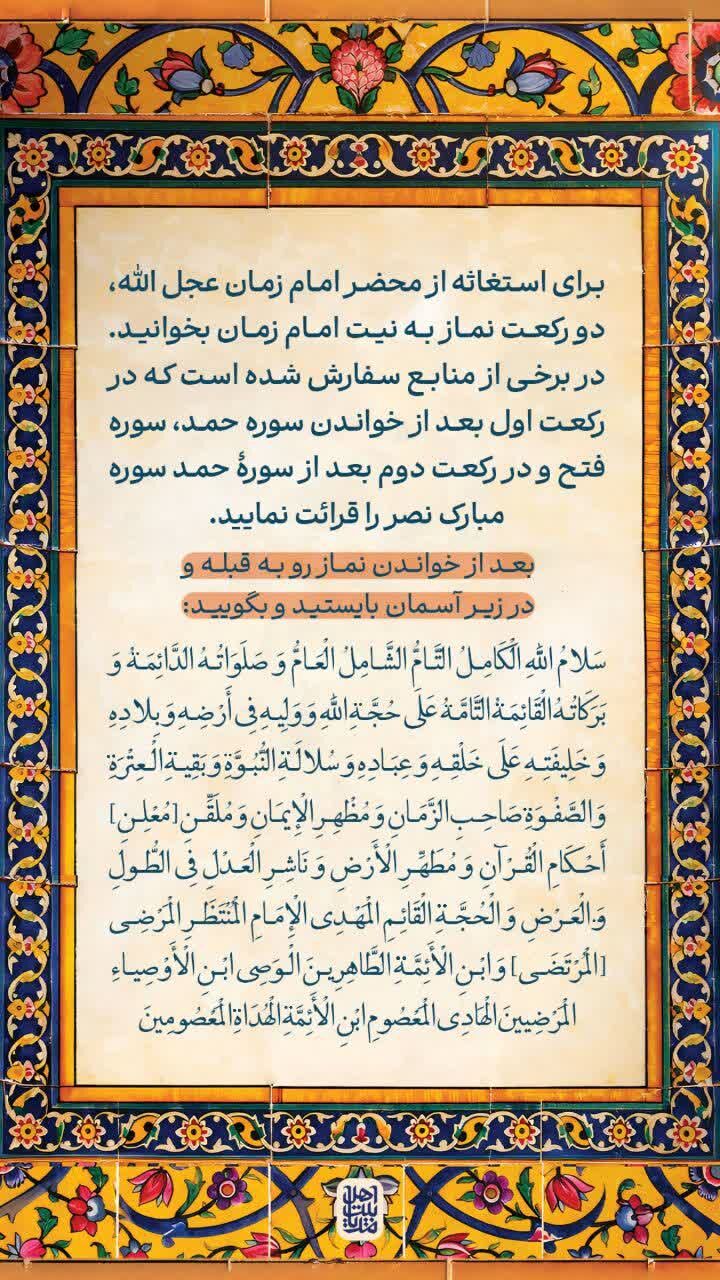 برای استغاثه از محضر امام زمان عجل الله،
دو رکعت نماز به نیت امام زمان بخوانید.
در برخی از منابع سفارش شده است که در
رکعت اول بعد از خواندن سوره حمد، سوره
فتح و در رکعت دوم بعد از سورهٔ حمد سوره
مبارک نصر را قرائت نمایید.
بعد از خواندن نماز رو به قبله و
در زیر آسمان بایستید و بگویید:
سَلامُ اللهِ الْكَامِلُ التَّامُّ الشَّامِلُ الْعَامُّ وَ صَلَوَاتُهُ الدَّائِمَةُ وَ
بَرَكَاتُهُ الْقَائِمَةُ التَّامَّةُ عَلَى حُجَّةِ اللهِ وَ وَلِيِهِ فِى أَرْضِهِ وَ بِلادِهِ
وَ خَلِيفَتِهِ عَلَى خَلْقِهِ وَ عِبَادِهِ وَ سُلالَةِ النُّبُوَّةِ وَ بَقِيةِ الْعِتْرَةِ
وَ الصَّفْوَةِ صَاحِبِ الزَّمَانِ وَ مُظْهِرِ الْإِيمَانِ وَ مُلَقِّنِ [مُعْلِنِ]
أَحْكَامِ الْقُرْآنِ وَ مُطَهِّرِ الْأَرْضِ وَ نَاشِرِ الْعَدْلِ فِى الطُّولِ
وَ الْعَرْضِ وَ الْحُجَّةِ الْقَائِمِ الْمَهْدِى الْإِمَامِ الْمُنْتَظَرِ الْمَرْضِى
[الْمُرْتَضَى] وَ ابْنِ الْأَئِمَّةِ الطَّاهِرِينَ الْوَصِى ابْنِ الْأَوْصِيَاءِ
الْمَرْضِيينَ الْهَادِى الْمَعْصُومِ ابْنِ الْأَئِمَّةِ الْهُدَاةِ الْمَعْصُومِينَ